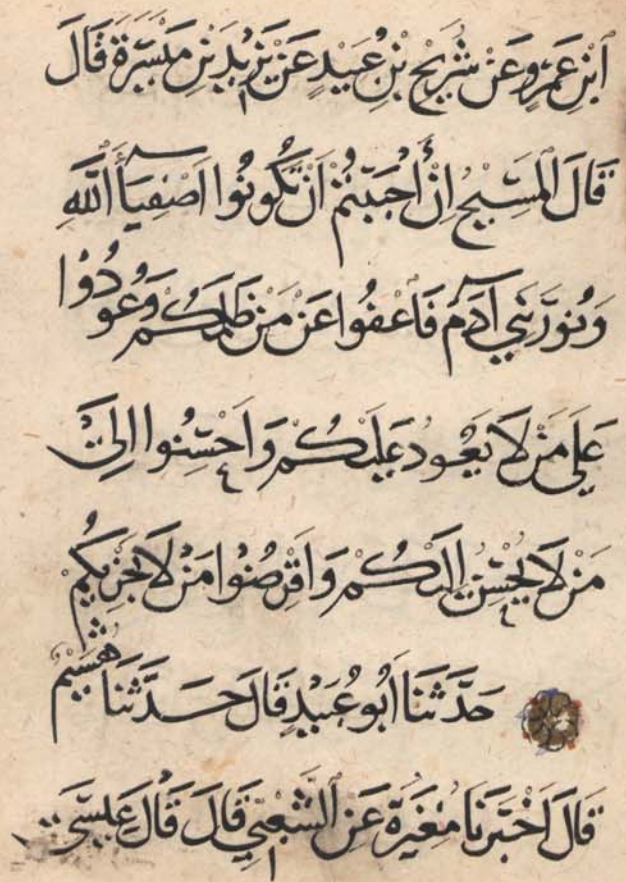 ٱبْنِ عَمْرٍو عَنْ شُرَيْحِ بْنِ عُبَيْدٍ عَنْ يَزِيْدَ بْنِ مَيْسَرَةَ قَالَ
قَالَ ٱلْمَسِيْحُ اِنْ أَحْبَبْتُمْ اَنْ تَكُونُوا اَصْفِيَآءَ ٱللَّهِ
وَنُورَ بَنِي آدَمَ فَاعْفُوا عَنْ مَنْ ظَلَمَكُمْ وَعُودُوا
عَلَى مَنْ لَا يَعُودُ عَلَيْكُمْ وَاَحْسِنُوا اِلَى
مَنْ لَا يُحْسِنُ اِلَيْكُمْ وَاَقْرِضُوا مَنْ لَا يَجْزِيكُمْ
حَدَّثَنَا اَبُو عُبَيْدٍ قَالَ حَدَّثَنَا هُشَيْمٌ
قَالَ اَخْبَرَنَا مُغِيْرَةُ عَنِ ٱلشَّعْبِيِّ قَالَ قَالَ عِيسَى